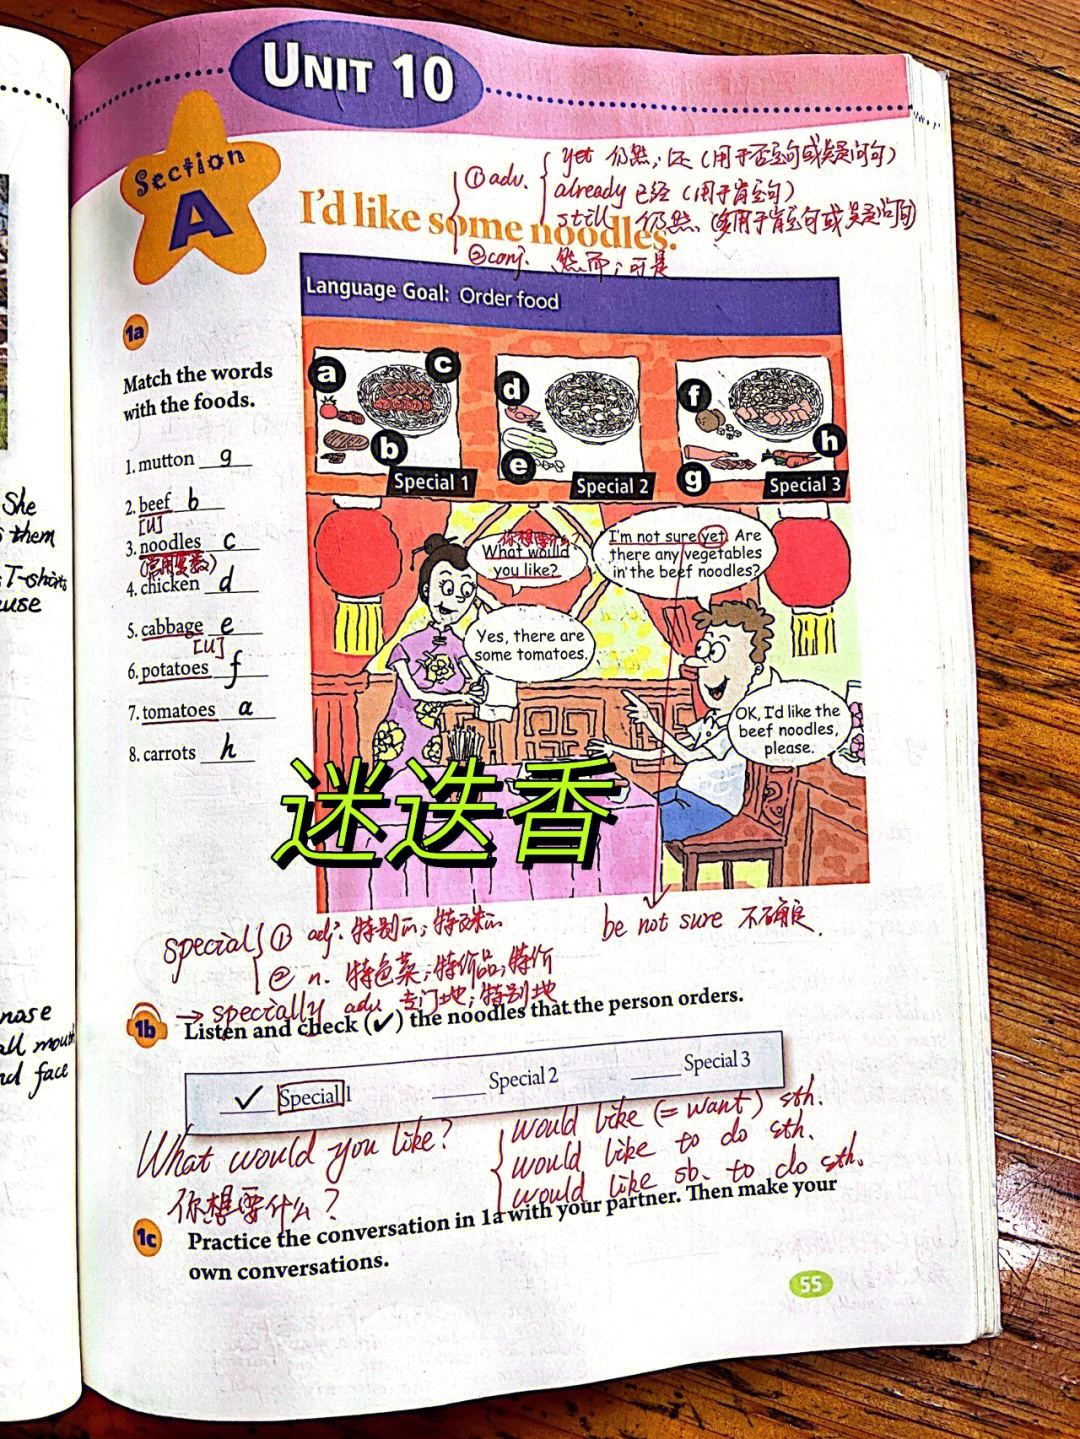 UNIT 10
Section
A
① adv.
yet 仍然;还 (用于否定句或疑问句)
already 已经 (用于肯定句)
still 仍然 (多用于肯定句或疑问句)
② conj. 然而;可是
I'd like some noodles.
Language Goal: Order food
1a
Match the words
with the foods.
1. mutton g
2. beef b
[U]
3. noodles c
(常用复数)
4. chicken d
5. cabbage e
[U]
6. potatoes f
7. tomatoes a
8. carrots h
a
c
b
Special 1
d
e
Special 2
f
h
g
Special 3
你想要什么?
What would
you like?
I'm not sure yet. Are
there any vegetables
in the beef noodles?
Yes, there are
some tomatoes.
OK, I'd like the
beef noodles,
please.
迷迭香
be not sure 不确定.
special ① adj. 特别的;特殊的
② n. 特色菜;特价品;特价
→ specially adv. 专门地;特别地
1b
Listen and check (✓) the noodles that the person orders.
✓ Special 1
Special 2
Special 3
What would you like?
你想要什么?
would like (= want) sth.
would like to do sth.
would like sb. to do sth.
1c
Practice the conversation in 1a with your partner. Then make your
own conversations.
55
She
them
T-shirts
nose
all mouth
face